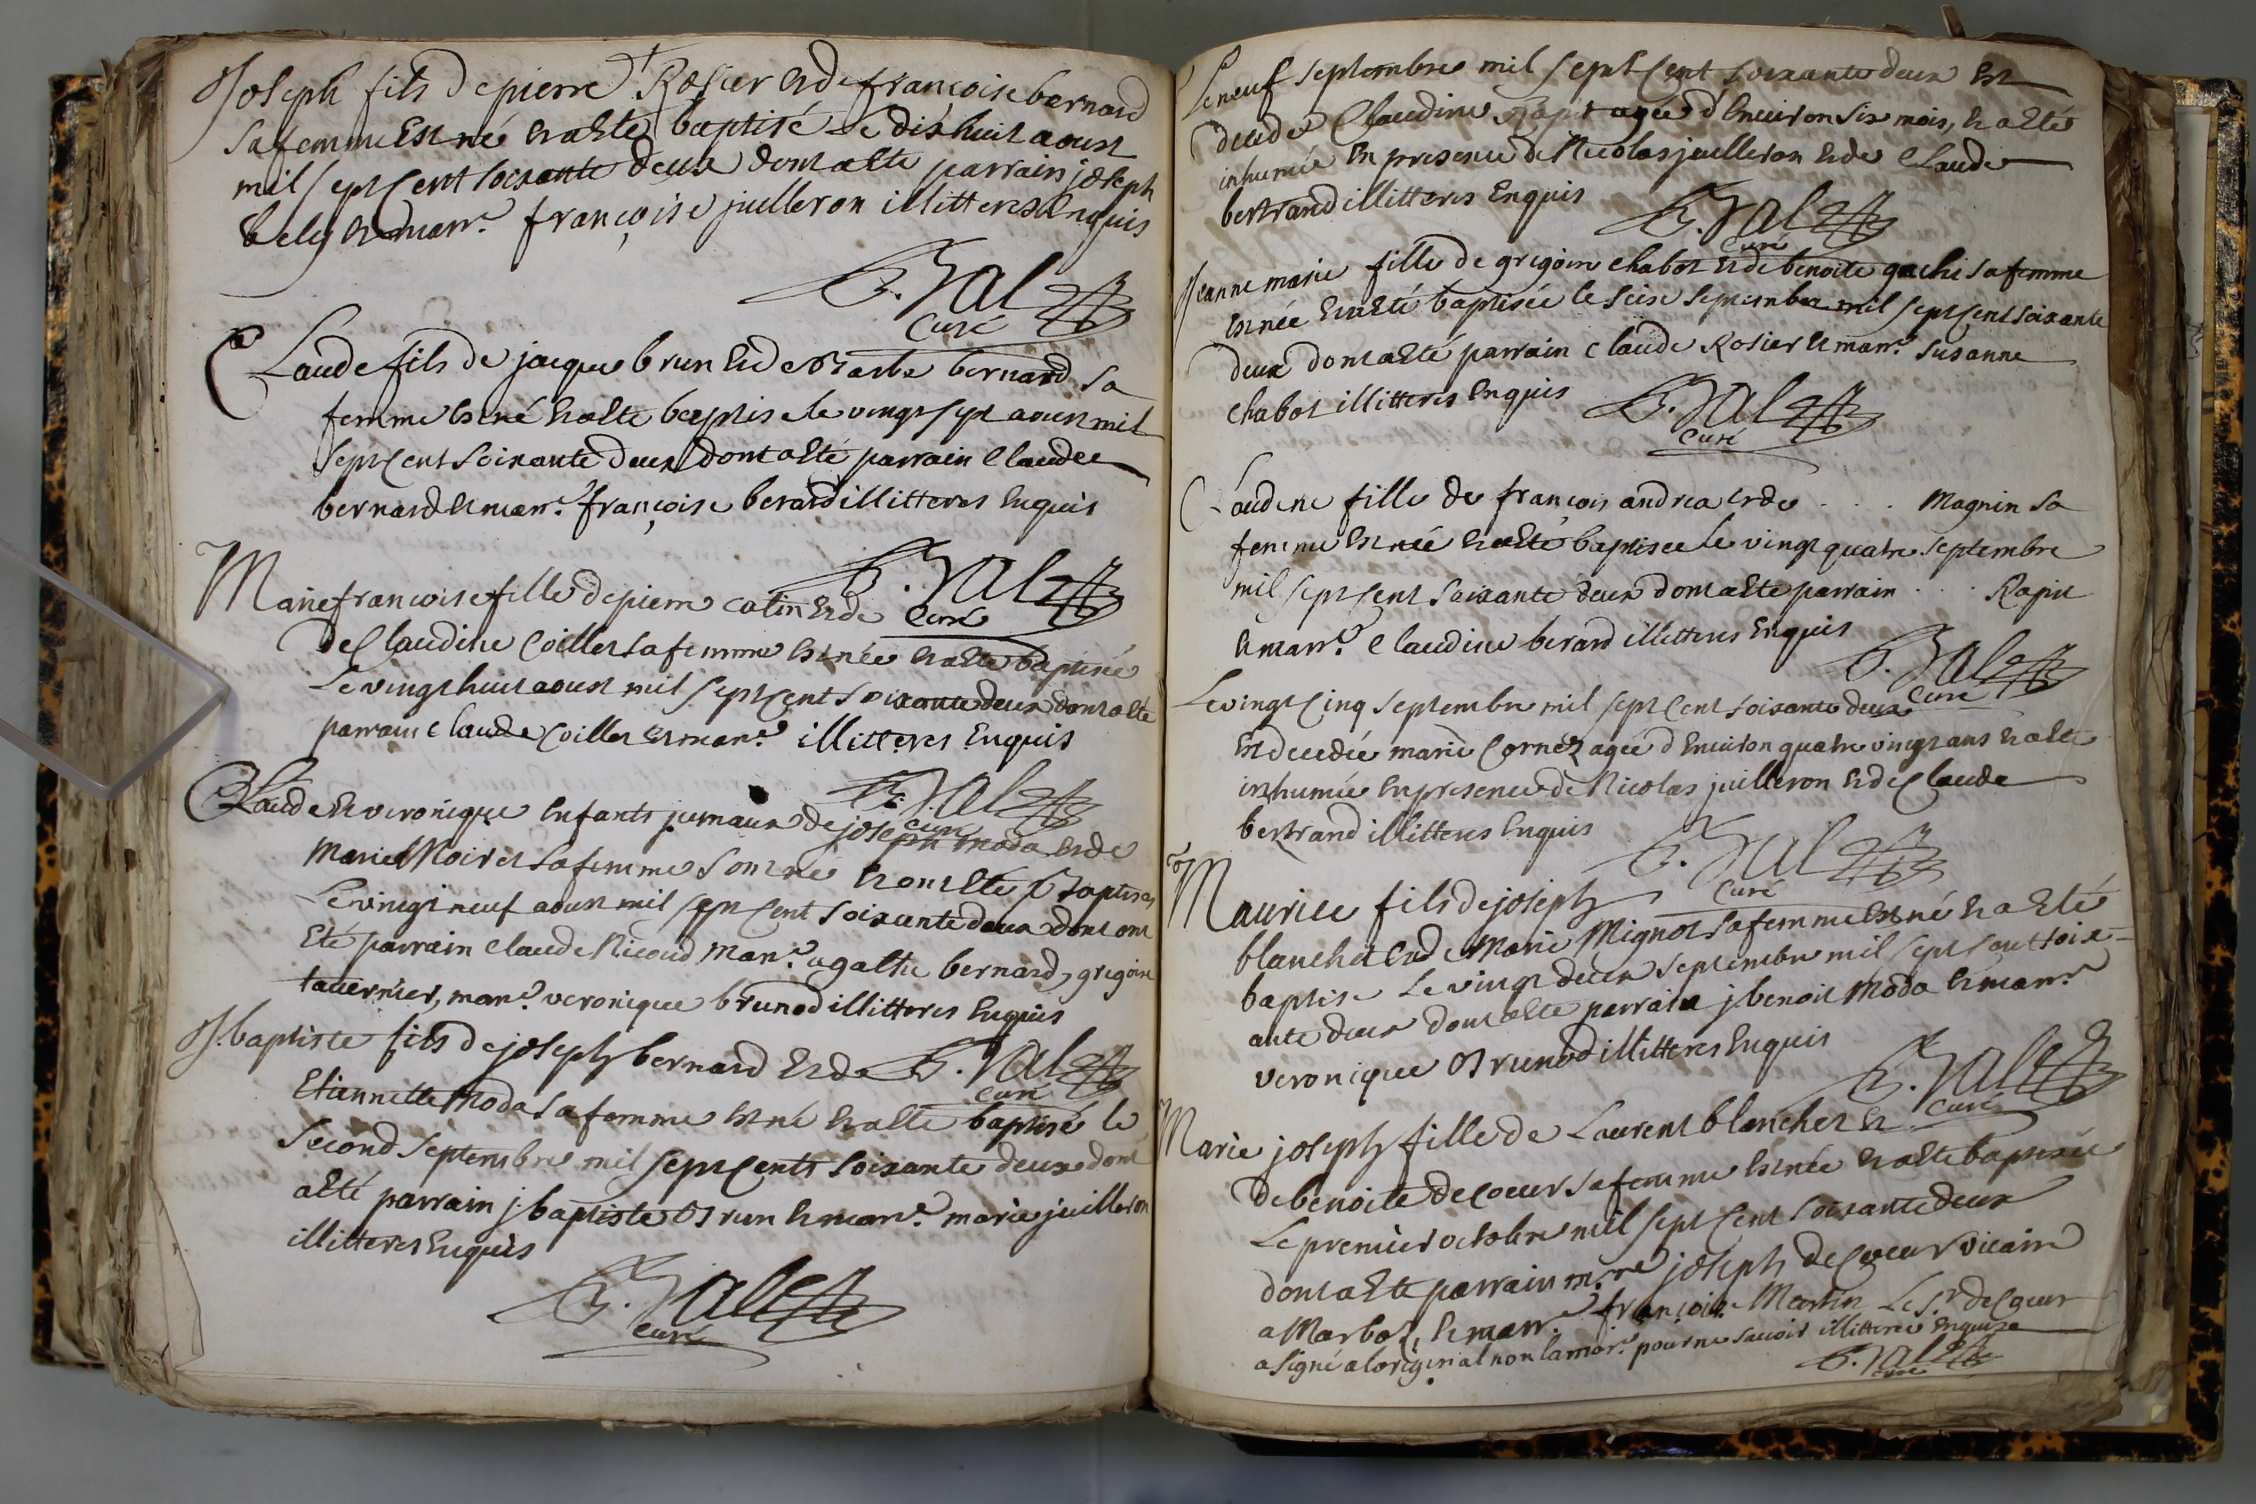 Joseph fils de pierre Rosier et de françoise bernard
sa femme Est né et a Eté baptisé Le dixhuit aoust
mil sept Cent soixante deux dont a Eté parrain joseph
bely et marr.e françoise juilleron illitteres Enquis
B. Valet
Curé
Claude fils de jacque brun Et de Barbe bernard sa
femme Est né Et a Eté baptisé le vingt sept aoust mil
sept Cent soixante deux dont a Eté parrain Claude
bernard et marr.e françoise berard illitteres Enquis
B. Valet
Marie françoise fille de pierre catin Et de Curé
de Claudine Coillet sa femme Est née Et a Eté baptisée
Le vingt huit aoust mil sept Cent soixante deux dont a Eté
parrain Claude Coillet et marr.e illitteres Enquis
B. Valet
Curé
Claude et veronique Enfants jumaux de joseph moda Et de
Marie Noiret sa femme sont né Et ont Eté Baptisés
Le vingt neuf aoust mil sept Cent soixante deux dont ont
Eté parrain Claude Nicoud Marr.e agathe bernard, gregoire
tavernier, marr.e veronique brunod illitteres Enquis
J. baptiste fils de joseph bernard Et de B. Valet
Curé
Etiennette Moda sa femme Est né Et a Eté baptisé le
second septembre mil sept Cents soixante deux dont
a Eté parrain j baptiste Brun et marr.e marie juilleron
illitteres Enquis
B. Valet
Curé
Le neuf septembre mil sept Cent soixante deux Est
decede Claudine Rapit agée d'Environ six mois, Et a Eté
inhumée En presence de Nicolas juilleron Et de Claude
bertrand illitteres Enquis
B. Valet
Curé
Jeanne marie fille de grigoire chabot Et de benoite gachi sa femme
Est née Et a Eté baptisée le seise septembre mil sept Cent soixante
deux dont a Eté parrain Claude Rosier et marr.e susanne
chabot illitteres Enquis
B. Valet
Curé
Claudine fille de françois andrea et de . . . . Magnin sa
femme Est née Et a Eté baptisée le vingt quatre septembre
mil sept Cent soixante deux dont a Eté parrain . . . Rapit
Et marr.e Claudine berard illitteres Enquis
B. Valet
Curé
Le vingt Cinq septembre mil sept Cent soixante deux
Est decedée marie Cornez agée d'Environ quatre vingt ans Et a Eté
inhumée En presence de Nicolas juilleron Et de Claude
bertrand illitteres Enquis
B. Valet
Curé
Maurice fils de joseph
blanchet Et de Marie Mignot sa femme Est né Et a Eté
baptisé Le vingt deux septembre mil sept Cent soix-
ante deux dont a Eté parrain j benoit Moda Et marr.e
veronique Brunod illitteres Enquis
B. Valet
Curé
Marie joseph fille de Laurent blanchet Et
de benoite de Coeur sa femme Est née Et a Eté baptisée
Le premier octobre mil sept Cent soixante deux
dont a Eté parrain m.re joseph de Coeur vicaire
a Marboz, Et marr.e françoise Martin Le s.r de Coeur
a signé a loriginal non la marr.e pour ne savoir illitteree Enquise
B. Valet
curé